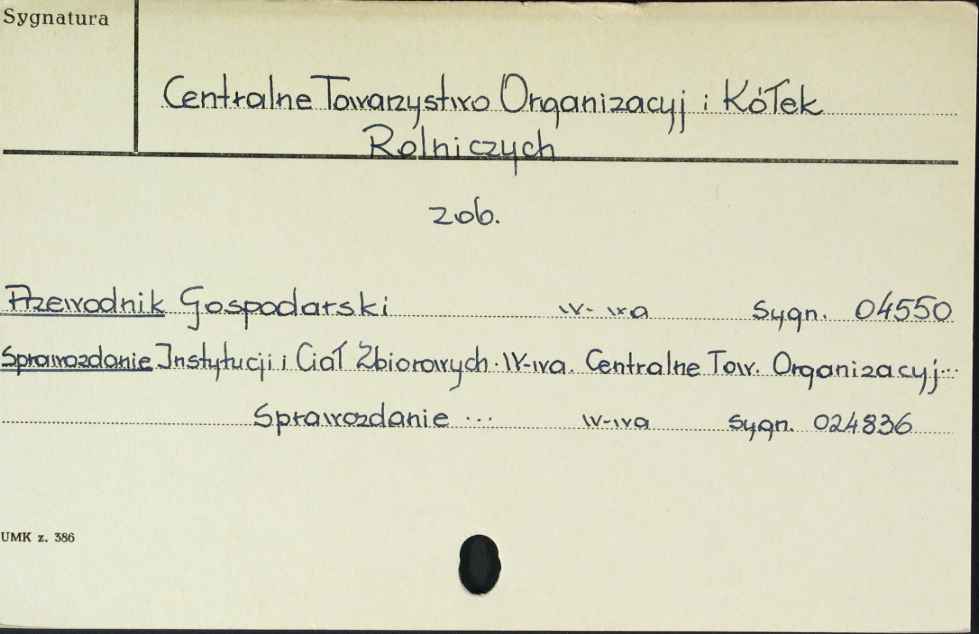 Sygnatura
Centralne Towarzystwo Organizacyj i Kółek
Rolniczych
zob.
Przewodnik Gospodarski W-wa Sygn. 04550
Sprawozdanie Instytucji i Ciał Zbiorowych. W-wa. Centralne Tow. Organizacyj...
Sprawozdanie ... W-wa Sygn. 024836
UMK z. 386